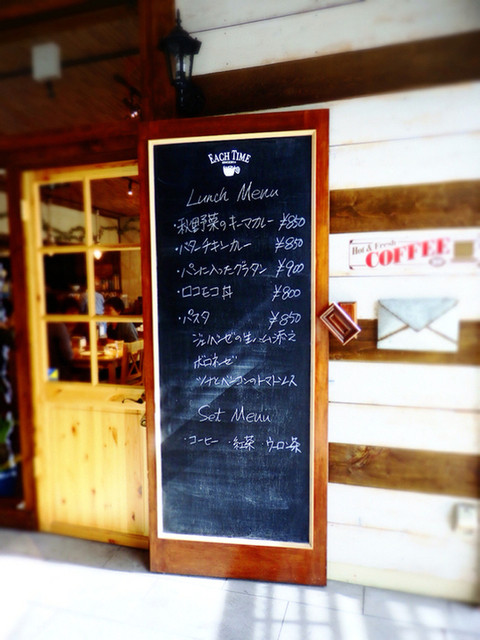 EACH TIME
Lunch Menu
・秋野菜のキーマカレー ¥850
・バターチキンカレー ¥850
・パンに入ったグラタン ¥900
・ロコモコ丼 ¥800
・パスタ ¥850
ジェノベーゼの生ハム添え
ボロネーゼ
ツナとベーコンのトマトソース
Set Menu
・コーヒー ・紅茶 ウーロン茶
Hot & Fresh
COFFEE